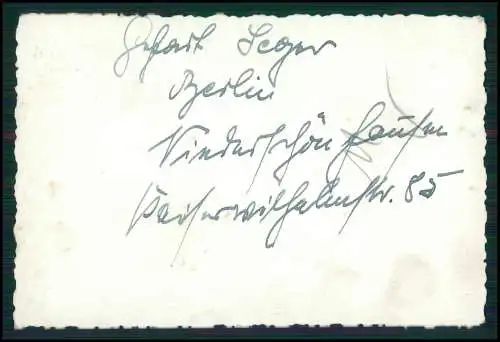 Gefart Seger
Berlin
Niederschönhausen
Kaiserwilhelmstr. 85